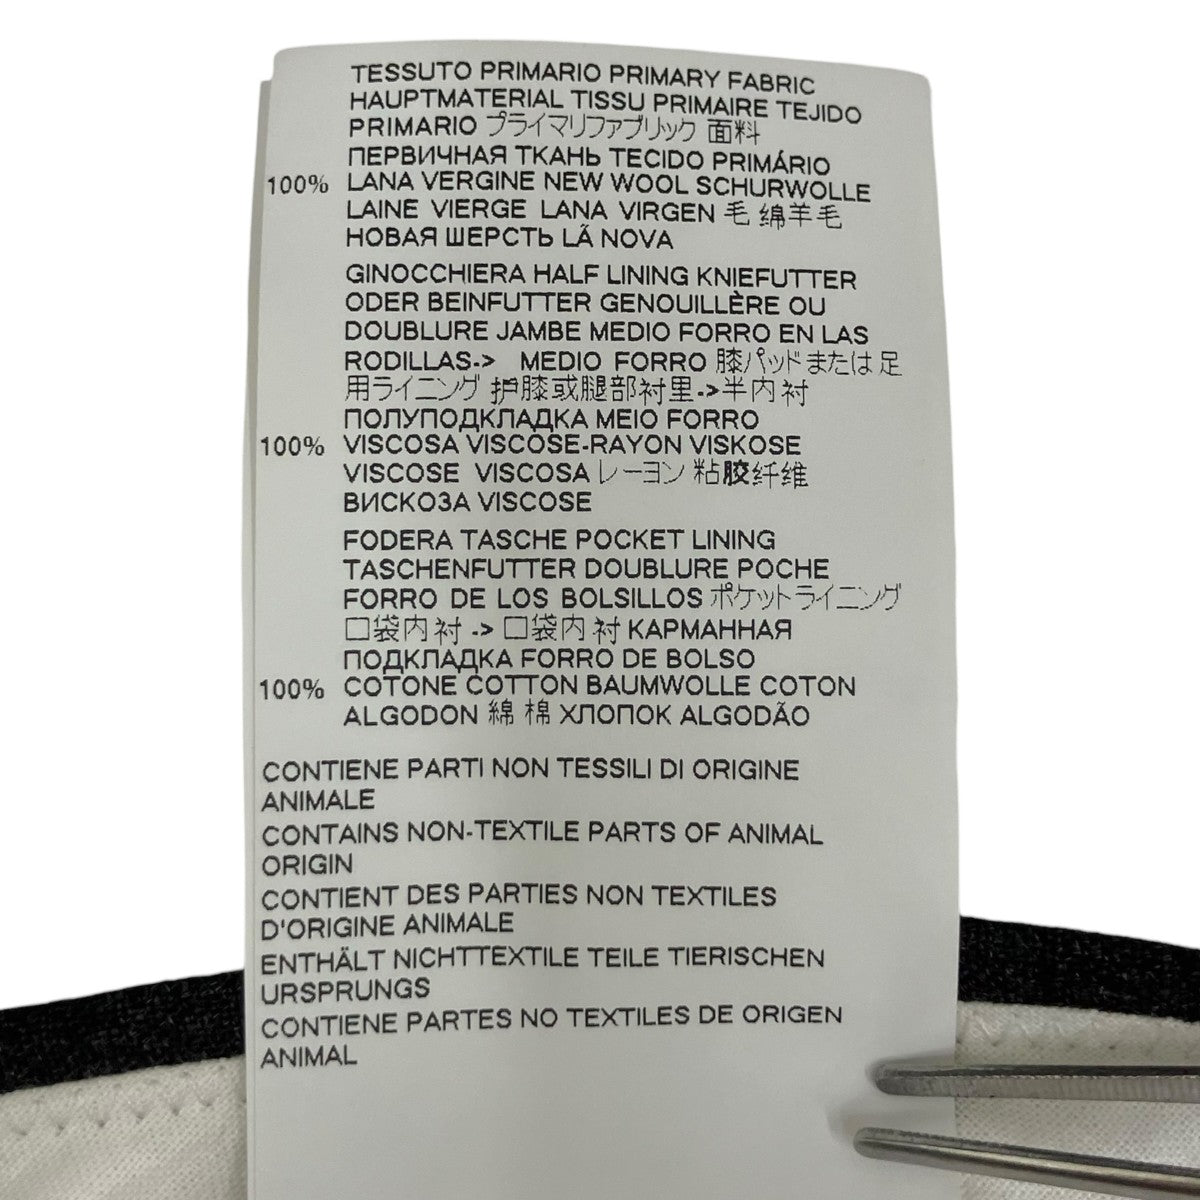 TESSUTO PRIMARIO PRIMARY FABRIC
HAUPTMATERIAL TISSU PRIMAIRE TEJIDO
PRIMARIO プライマリファブリック 面料
ПЕРВИЧНАЯ ТКАНЬ TECIDO PRIMÁRIO
100% LANA VERGINE NEW WOOL SCHURWOLLE
LAINE VIERGE LANA VIRGEN 毛 绵羊毛
НОВАЯ ШЕРСТЬ LÃ NOVA
GINOCCHIERA HALF LINING KNIEFUTTER
ODER BEINFUTTER GENOUILLÈRE OU
DOUBLURE JAMBE MEDIO FORRO EN LAS
RODILLAS-> MEDIO FORRO 膝パッドまたは足
用ライニング 护膝或腿部衬里->半内衬
ПОЛУПОДКЛАДКА MEIO FORRO
100% VISCOSA VISCOSE-RAYON VISKOSE
VISCOSE VISCOSA レーヨン 粘胶纤维
ВИСКОЗА VISCOSE
FODERA TASCHE POCKET LINING
TASCHENFUTTER DOUBLURE POCHE
FORRO DE LOS BOLSILLOS ポケットライニング
口袋内衬 -> 口袋内衬 КАРМАННАЯ
ПОДКЛАДКА FORRO DE BOLSO
100% COTONE COTTON BAUMWOLLE COTON
ALGODON 綿 棉 ХЛОПОК ALGODÃO
CONTIENE PARTI NON TESSILI DI ORIGINE
ANIMALE
CONTAINS NON-TEXTILE PARTS OF ANIMAL
ORIGIN
CONTIENT DES PARTIES NON TEXTILES
D'ORIGINE ANIMALE
ENTHÄLT NICHTTEXTILE TEILE TIERISCHEN
URSPRUNGS
CONTIENE PARTES NO TEXTILES DE ORIGEN
ANIMAL